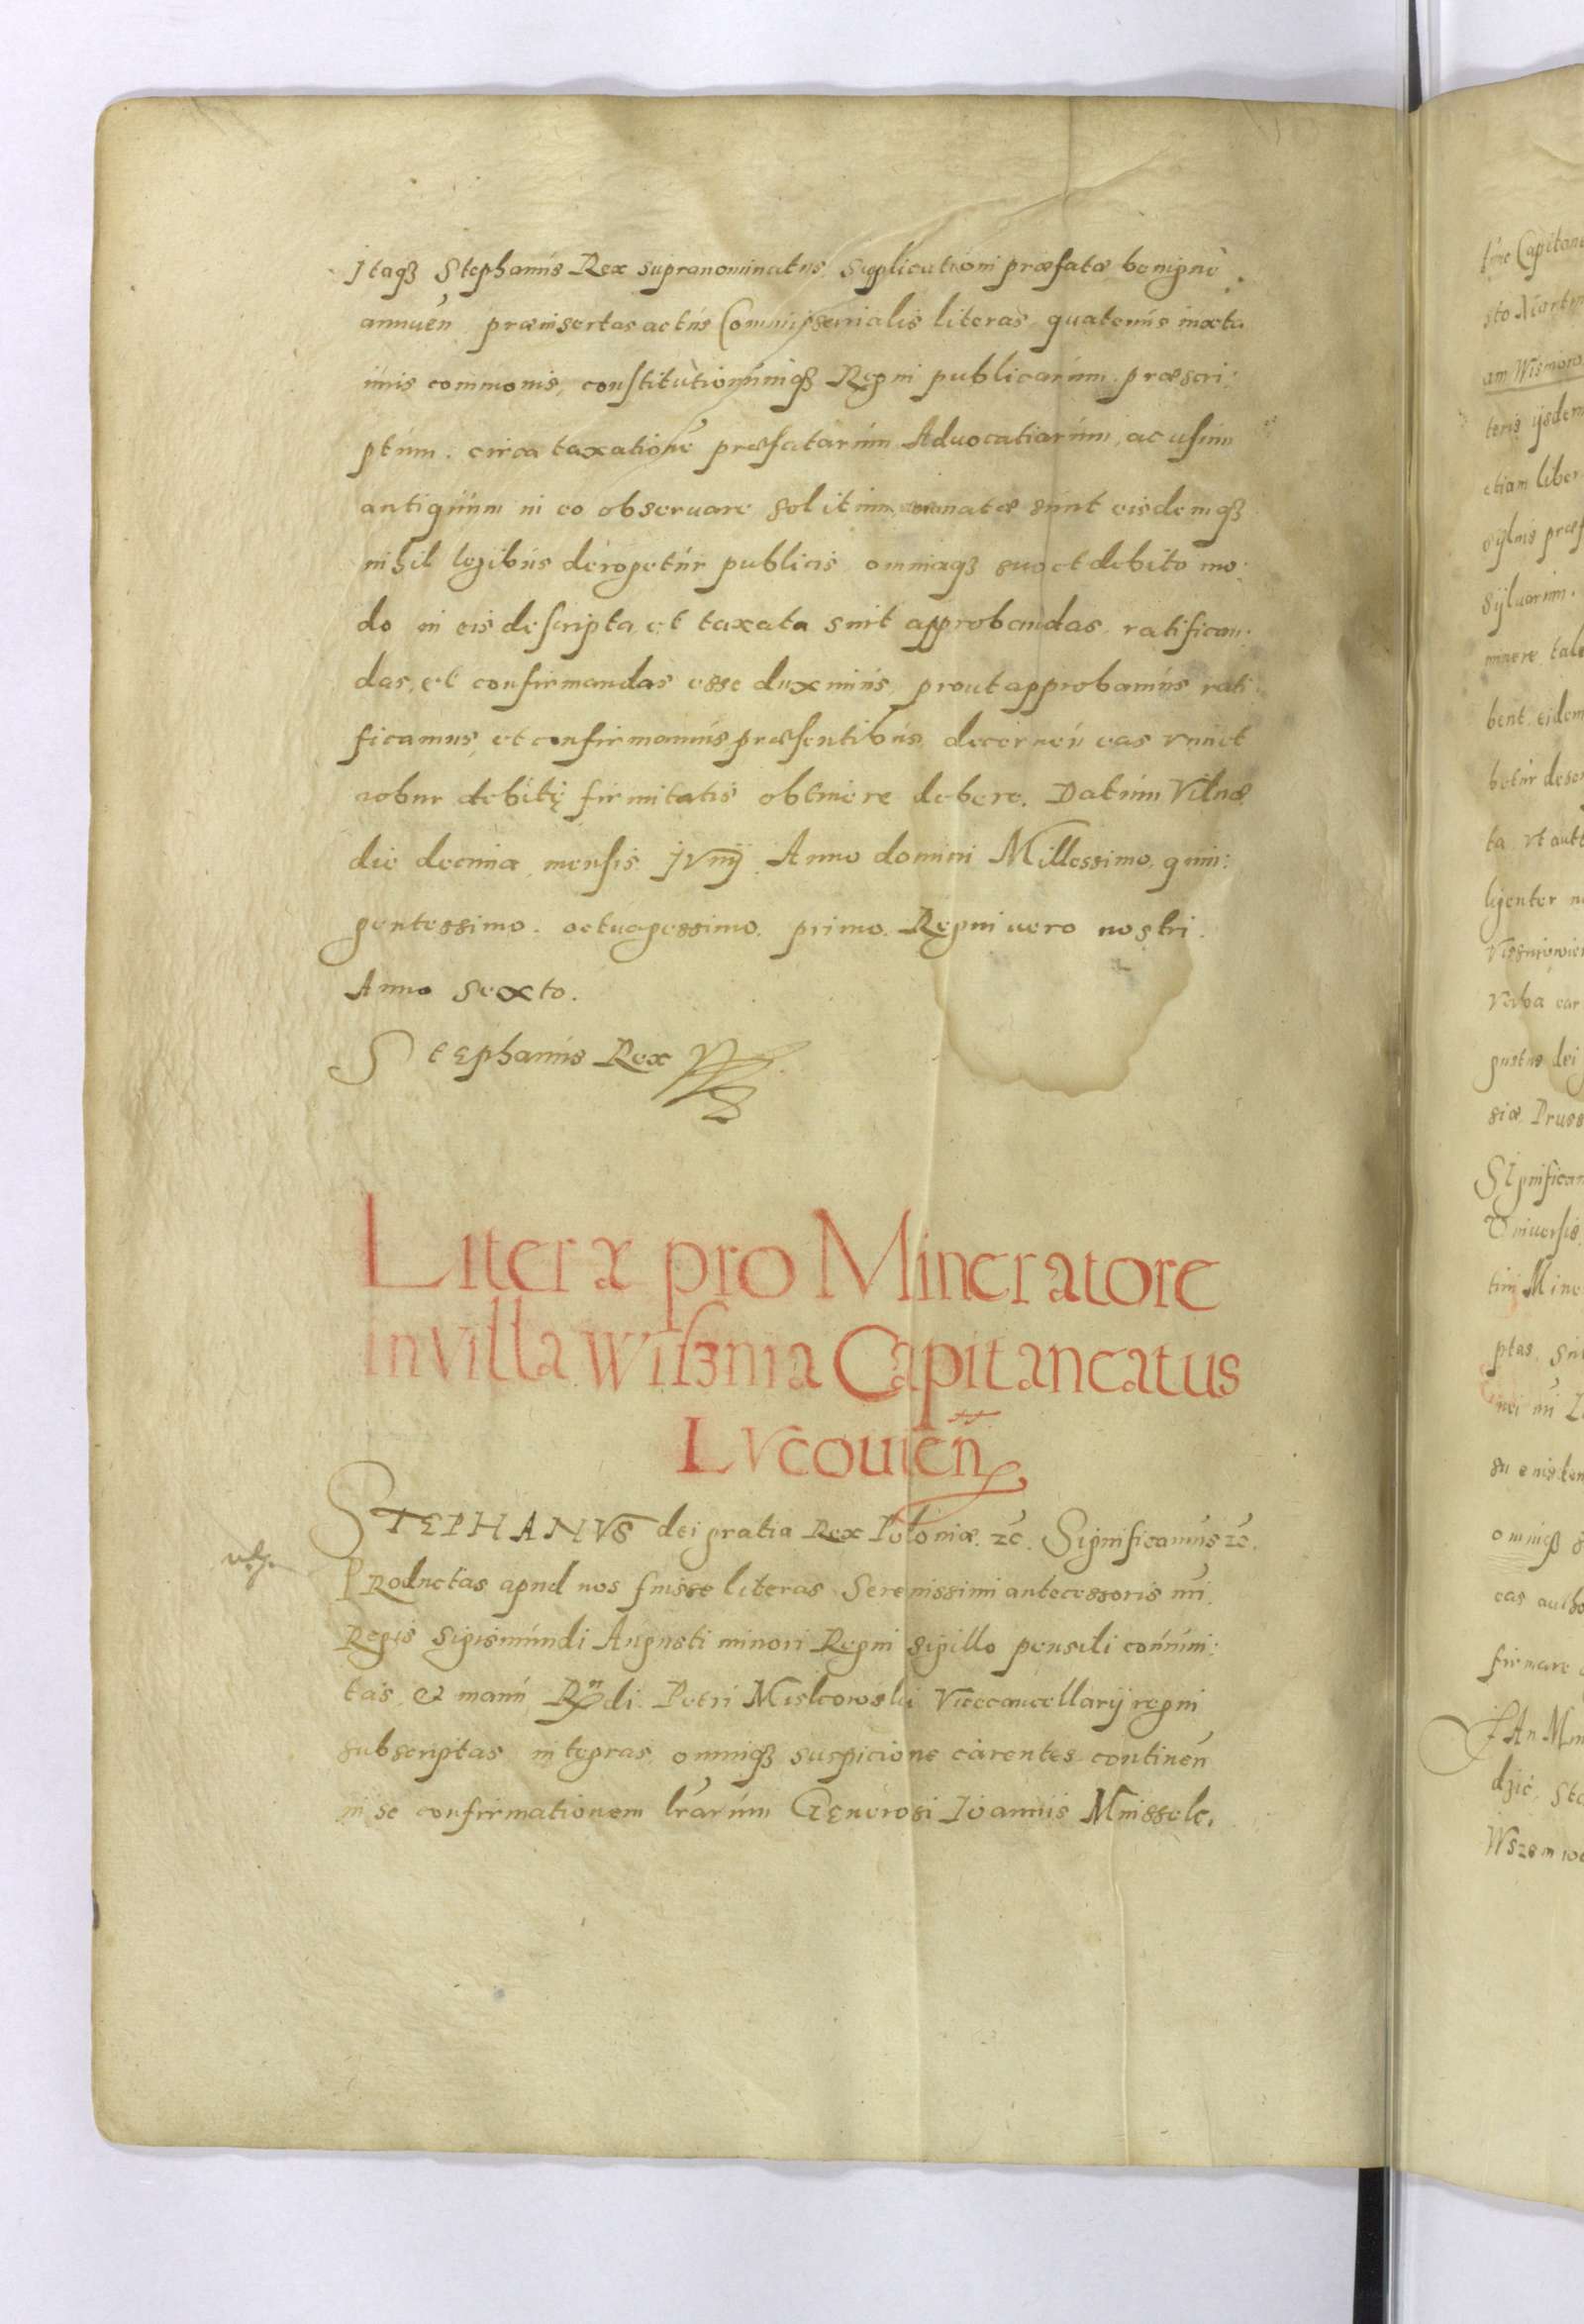 Itaqꝫ Stephanus Rex supranominatus, Suplicationi præfatæ benignè
annuen̄ præinsertas actus Commissarialis literas, quatenus iuxta
iuris communis, constitutionumqꝫ Regni publicarum, præscri:
ptum. circa taxationē præfatarum Advocatiarum, ac usum
antiquum in eo observare solitum, emanatæ sunt eisdemqꝫ
nihil legibus derogetur publicis, omniaqꝫ suo et debito mo:
do in eis descripta, et taxata sint approbandas, ratifican:
das, et confirmandas esse duximus, prout approbamus rati:
ficamus, et confirmamus præsentibus, decernen̄ eas vim et
robur debitę firmitatis obtinere debere. Datum Vilnæ
die decima, mensis Ivnij. Anno domini Millessimo, quin:
gentessimo. octuagessimo. primo. Regni vero nostri.
Anno sexto.
Stephanus Rex
Literæ pro Mineratore
in villa Wisznia Capitaneatus
Lvcouien̄
STEPHANVS dei gratia Rex Poloniæ. ꝛc̄. Significamus ꝛc̄.
PRoductas apud nos fuisse literas Serenissimi antecessoris nr̄i.
Regis Sigismundi Augusti minori Regni sigillo pensili com̄uni:
tas, & manu Rn̄di. Petri Miskowski Vicecancellarij regni
subscriptas, integras, omniqꝫ suspicione carentes continen̄
in se confirmationem lr̄arum Generosi Ioannis Mnissek.
tīne Capitane
teris ijsdem
etiam liber
syluis præf
syluarum.
bent eidem
betur des
ta vt aut
ligenter n
Verba
gustus dei
siæ Pruss
Significam
Vniuersis
ptas, sn
omniqꝫ s
eas autho
firmare
IAn Mn
dzic, Sta